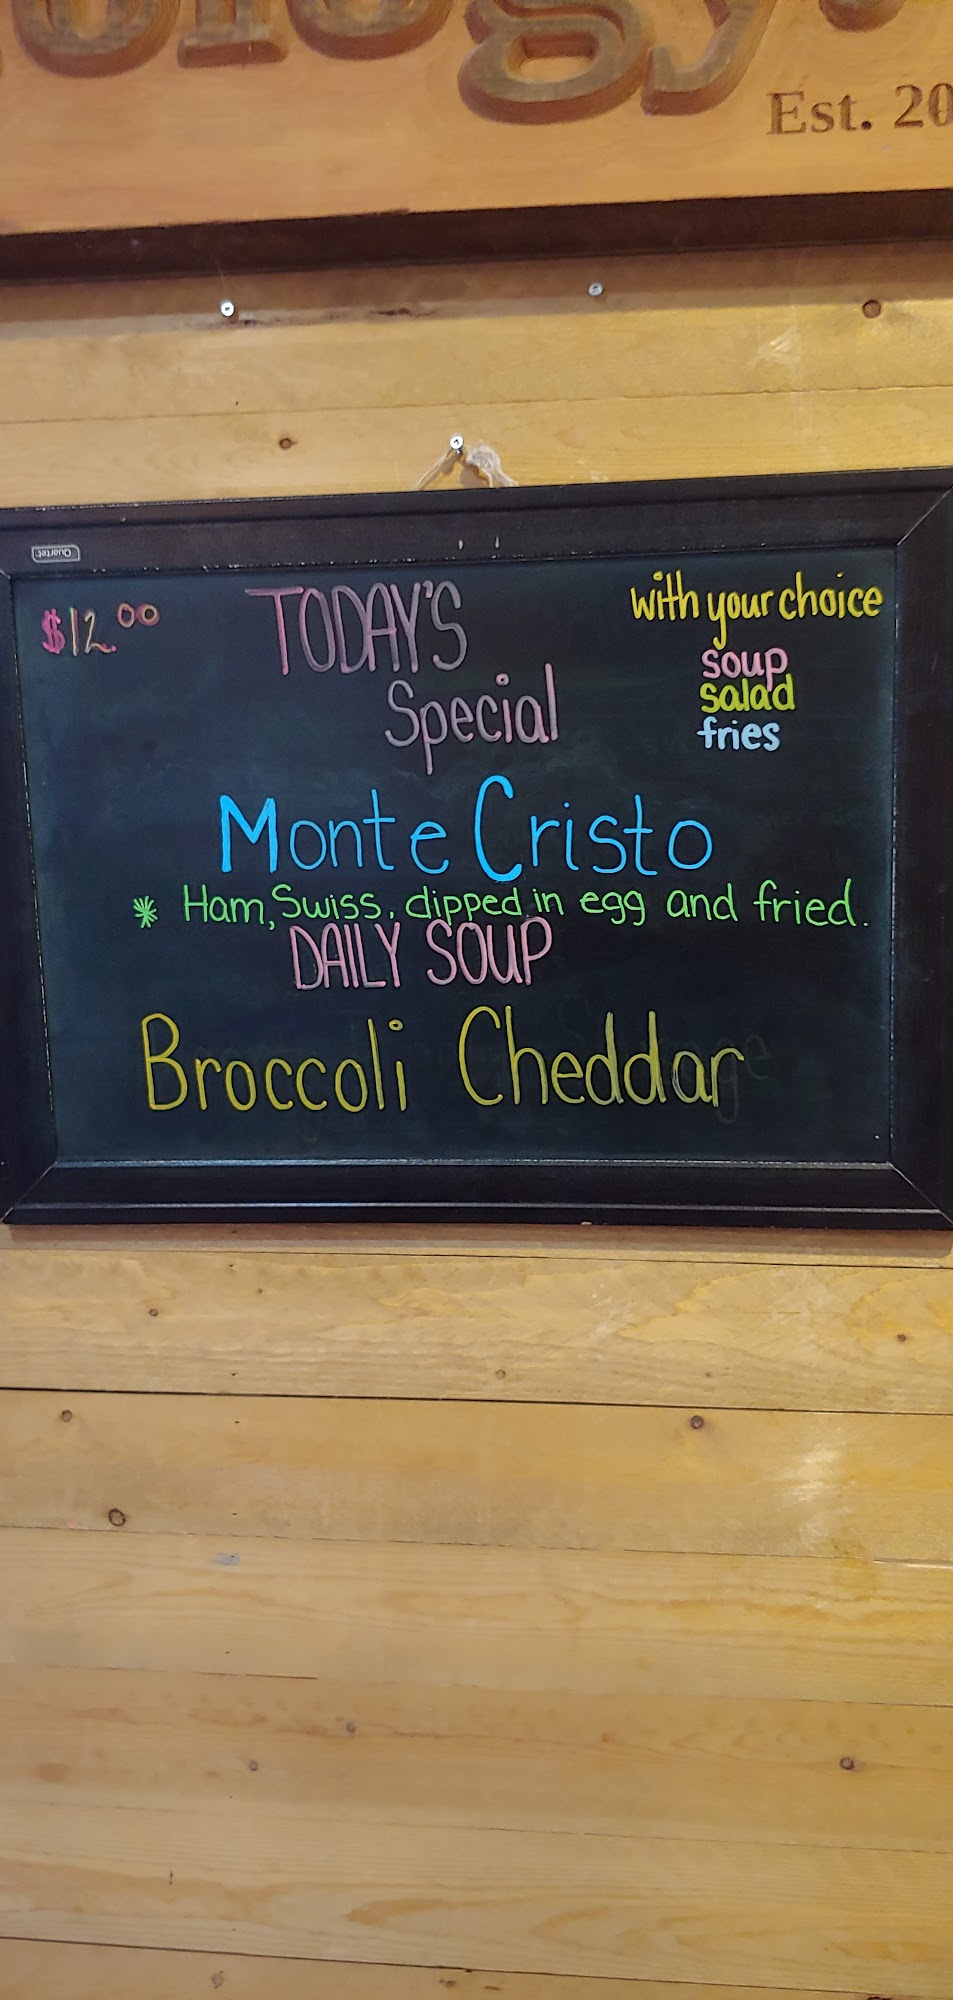 ology
Est. 20
Quartet
$12.00
TODAY'S
Special
with your choice
soup
salad
fries
Monte Cristo
* Ham, Swiss, dipped in egg and fried.
DAILY SOUP
Broccoli Cheddar